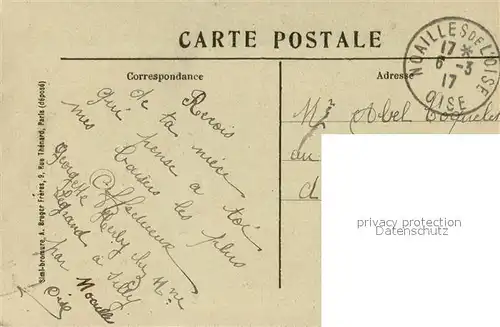 CARTE POSTALE
Correspondance
Adresse
NOAILLES DE L'OISE
17 *
6 -3
17
OISE
Simi-bromure, A. Breger Frères, 9, Rue Thénard, Paris (déposé)
Reçois
de ta nièce
qui pense à toi
mes baisers les plus
Affectueux
Georgette
chez Mme
Legrand à Silly
par Noailles
Oise
Mr Abel
au
d
privacy protection